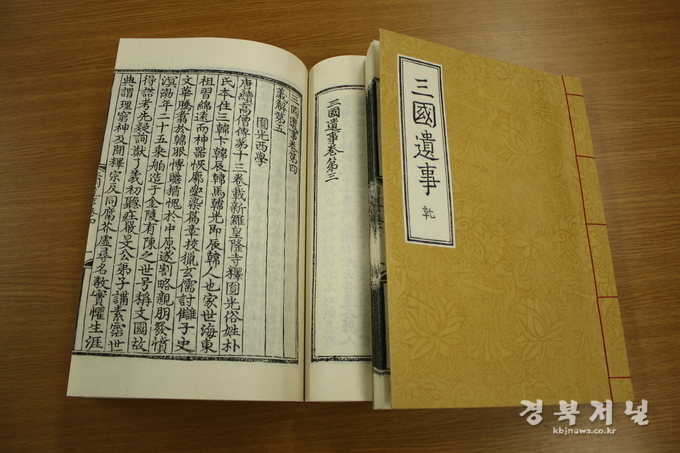 三國遺事
乾
三國遺事卷第三
三國遺事卷第四
義解第五
圎光西學
唐續高僧傳第十三卷載新羅皇隆寺釋圎光俗姓朴
氏本住三韓卞韓辰韓馬韓光即辰韓人也家世海東
祖習綿遠而神器恢廓愛染篇章校獵玄儒討讎子史
文華騰翥於韓服博贍猶愧於中原遂割略親朋發憤
溟渤年二十五乘舶造于金陵有陳之世号稱文國故
得諮考先疑詢猷了義初聽莊嚴旻公弟子講素霑世
典謂理窮神及聞釋宗反同腐芥虛尋名教實懼生涯
경북저널
kbjnews.co.kr